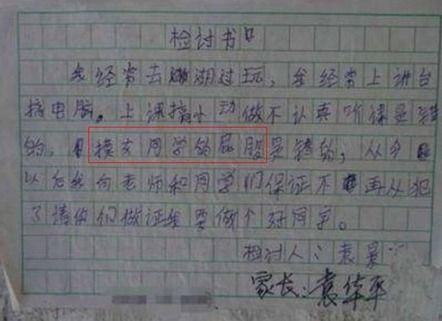 检讨书
我经常去湖边玩，我经常上讲台
搞电脑。上课搞小动做不认真听课是错
的。摸女同学的屁股是错的，从今
以后我向老师和同学们保证不再从犯
了请你们做证我要做个好同学。
检讨人：袁昊
家长：袁华平